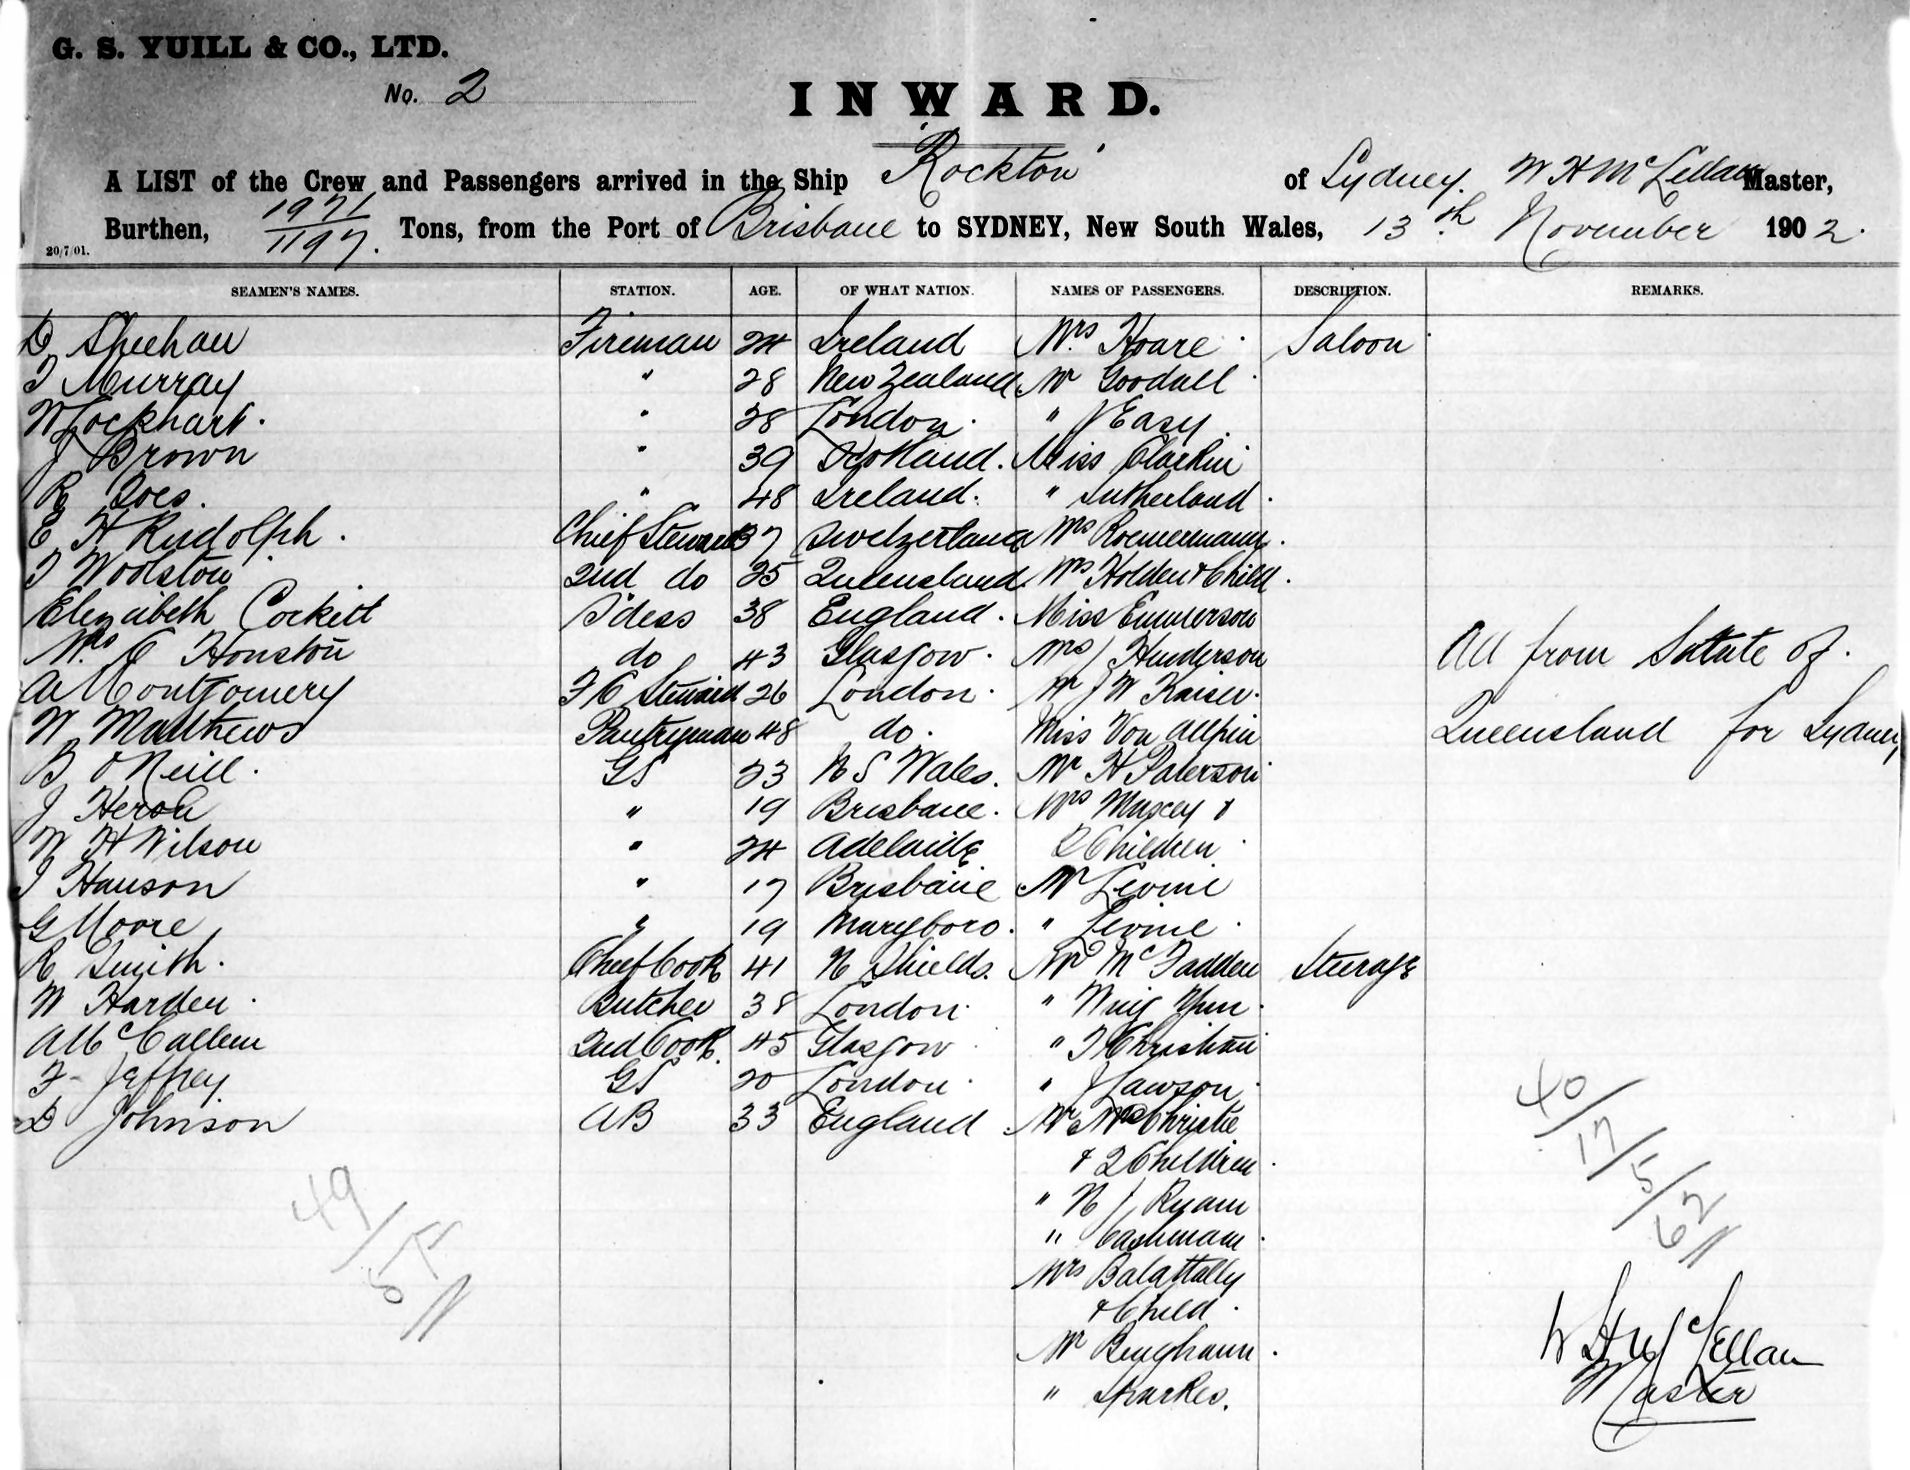 G. S. YUILL & CO., LTD.
No. 2
INWARD.
A LIST of the Crew and Passengers arrived in the Ship "Rockton" of Sydney. W H McLellan Master,
Burthen, 1971/1197. Tons, from the Port of Brisbane to SYDNEY, New South Wales, 13th November 1902.
20/7/01.
SEAMEN'S NAMES. STATION. AGE. OF WHAT NATION. NAMES OF PASSENGERS. DESCRIPTION. REMARKS.
D Sheehan Fireman 24 Ireland Mrs. Hoare Saloon
T Murray " 28 New Zealand Mr Goodall
W Lockhart. " 28 London. " J Easy.
J Brown " 39 Scotland. Miss Clarkin
R " 48 Ireland. " Sutherland.
E H Rudolph. Chief Steward 37 Swetzerland Mrs Roemermann.
T Woolston 2nd do 25 Queensland Mrs Holden & Child.
Elizabeth Cockett S'dess 38 England. Miss Emmerson
Mrs. C Houston do 43 Glasgow. Mrs J Henderson All from Satate of.
A Montgomery F C Steward 26 London. Mr J W Kaiser.
W Matthews Pantryman 48 do. Miss Von Queensland for Sydney
B O'Neill. GS 23 N S Wales. Mr H Paterson
J " 19 Brisbane. Mrs Maxey &
W H Wilson " 24 Adelaide 2 Children
J Hanson " 17 Brisbane Mr Levine
G Moore " 19 Maryboro. " Levine.
R Smith. Chief Cook 41 N Shields. Mr McFadden Steerage
W Harden Butcher 38 London. "
A McCallum 2nd Cook. 45 Glasgow " T Christian
F Jeffrey GS 20 London. " J Lawson.
D Johnson AB 33 England Mr Mrs Christie
& 2 Children.
" N J Ryan
" Cashman.
Mrs
& Child.
Mr Bingham.
" Sparkes.
49/5
40/17/5/62//
W H McLellan
Master